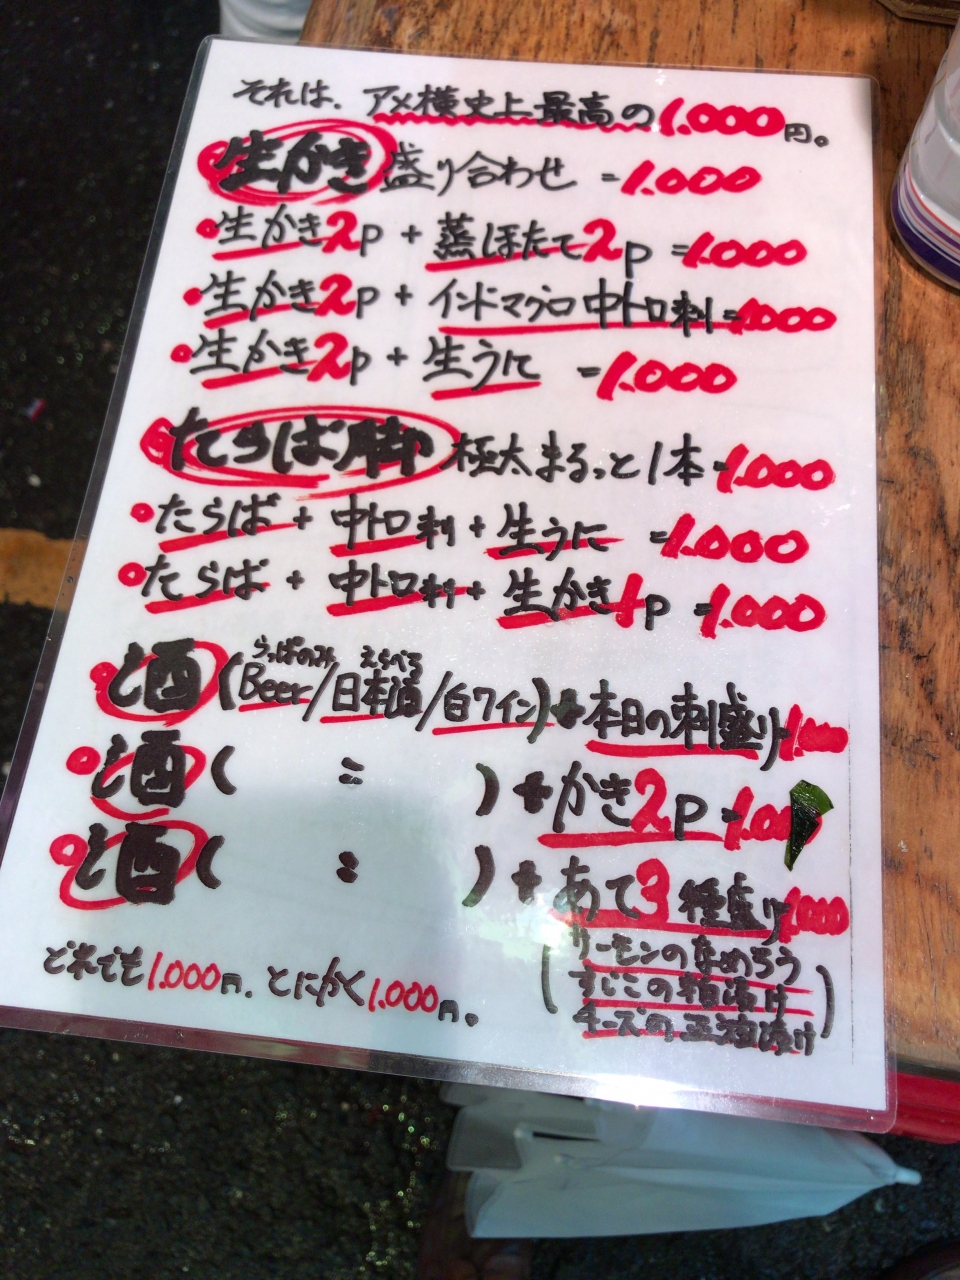 それは、アメ横史上最高の1.000円。
生かき盛り合わせ =1.000
生かき2p + 蒸しほたて2p =1.000
生かき2p + インドマグロ中トロ刺=1.000
生かき2p + 生うに =1.000
たらば脚 極太まるっと1本=1.000
たらば + 中トロ刺 + 生うに =1.000
たらば + 中トロ刺 + 生かき1p =1.000
らっぱのみ えらべる
酒(Beer/日本酒/白ワイン)+本日の刺盛り
酒( 〃 )+かき2p=1.00
酒( 〃 )+あて3種盛り1.000
サーモンのなめろう
すじこの粕漬け
チーズの正油漬け
どれでも1.000円、とにかく1.000円。